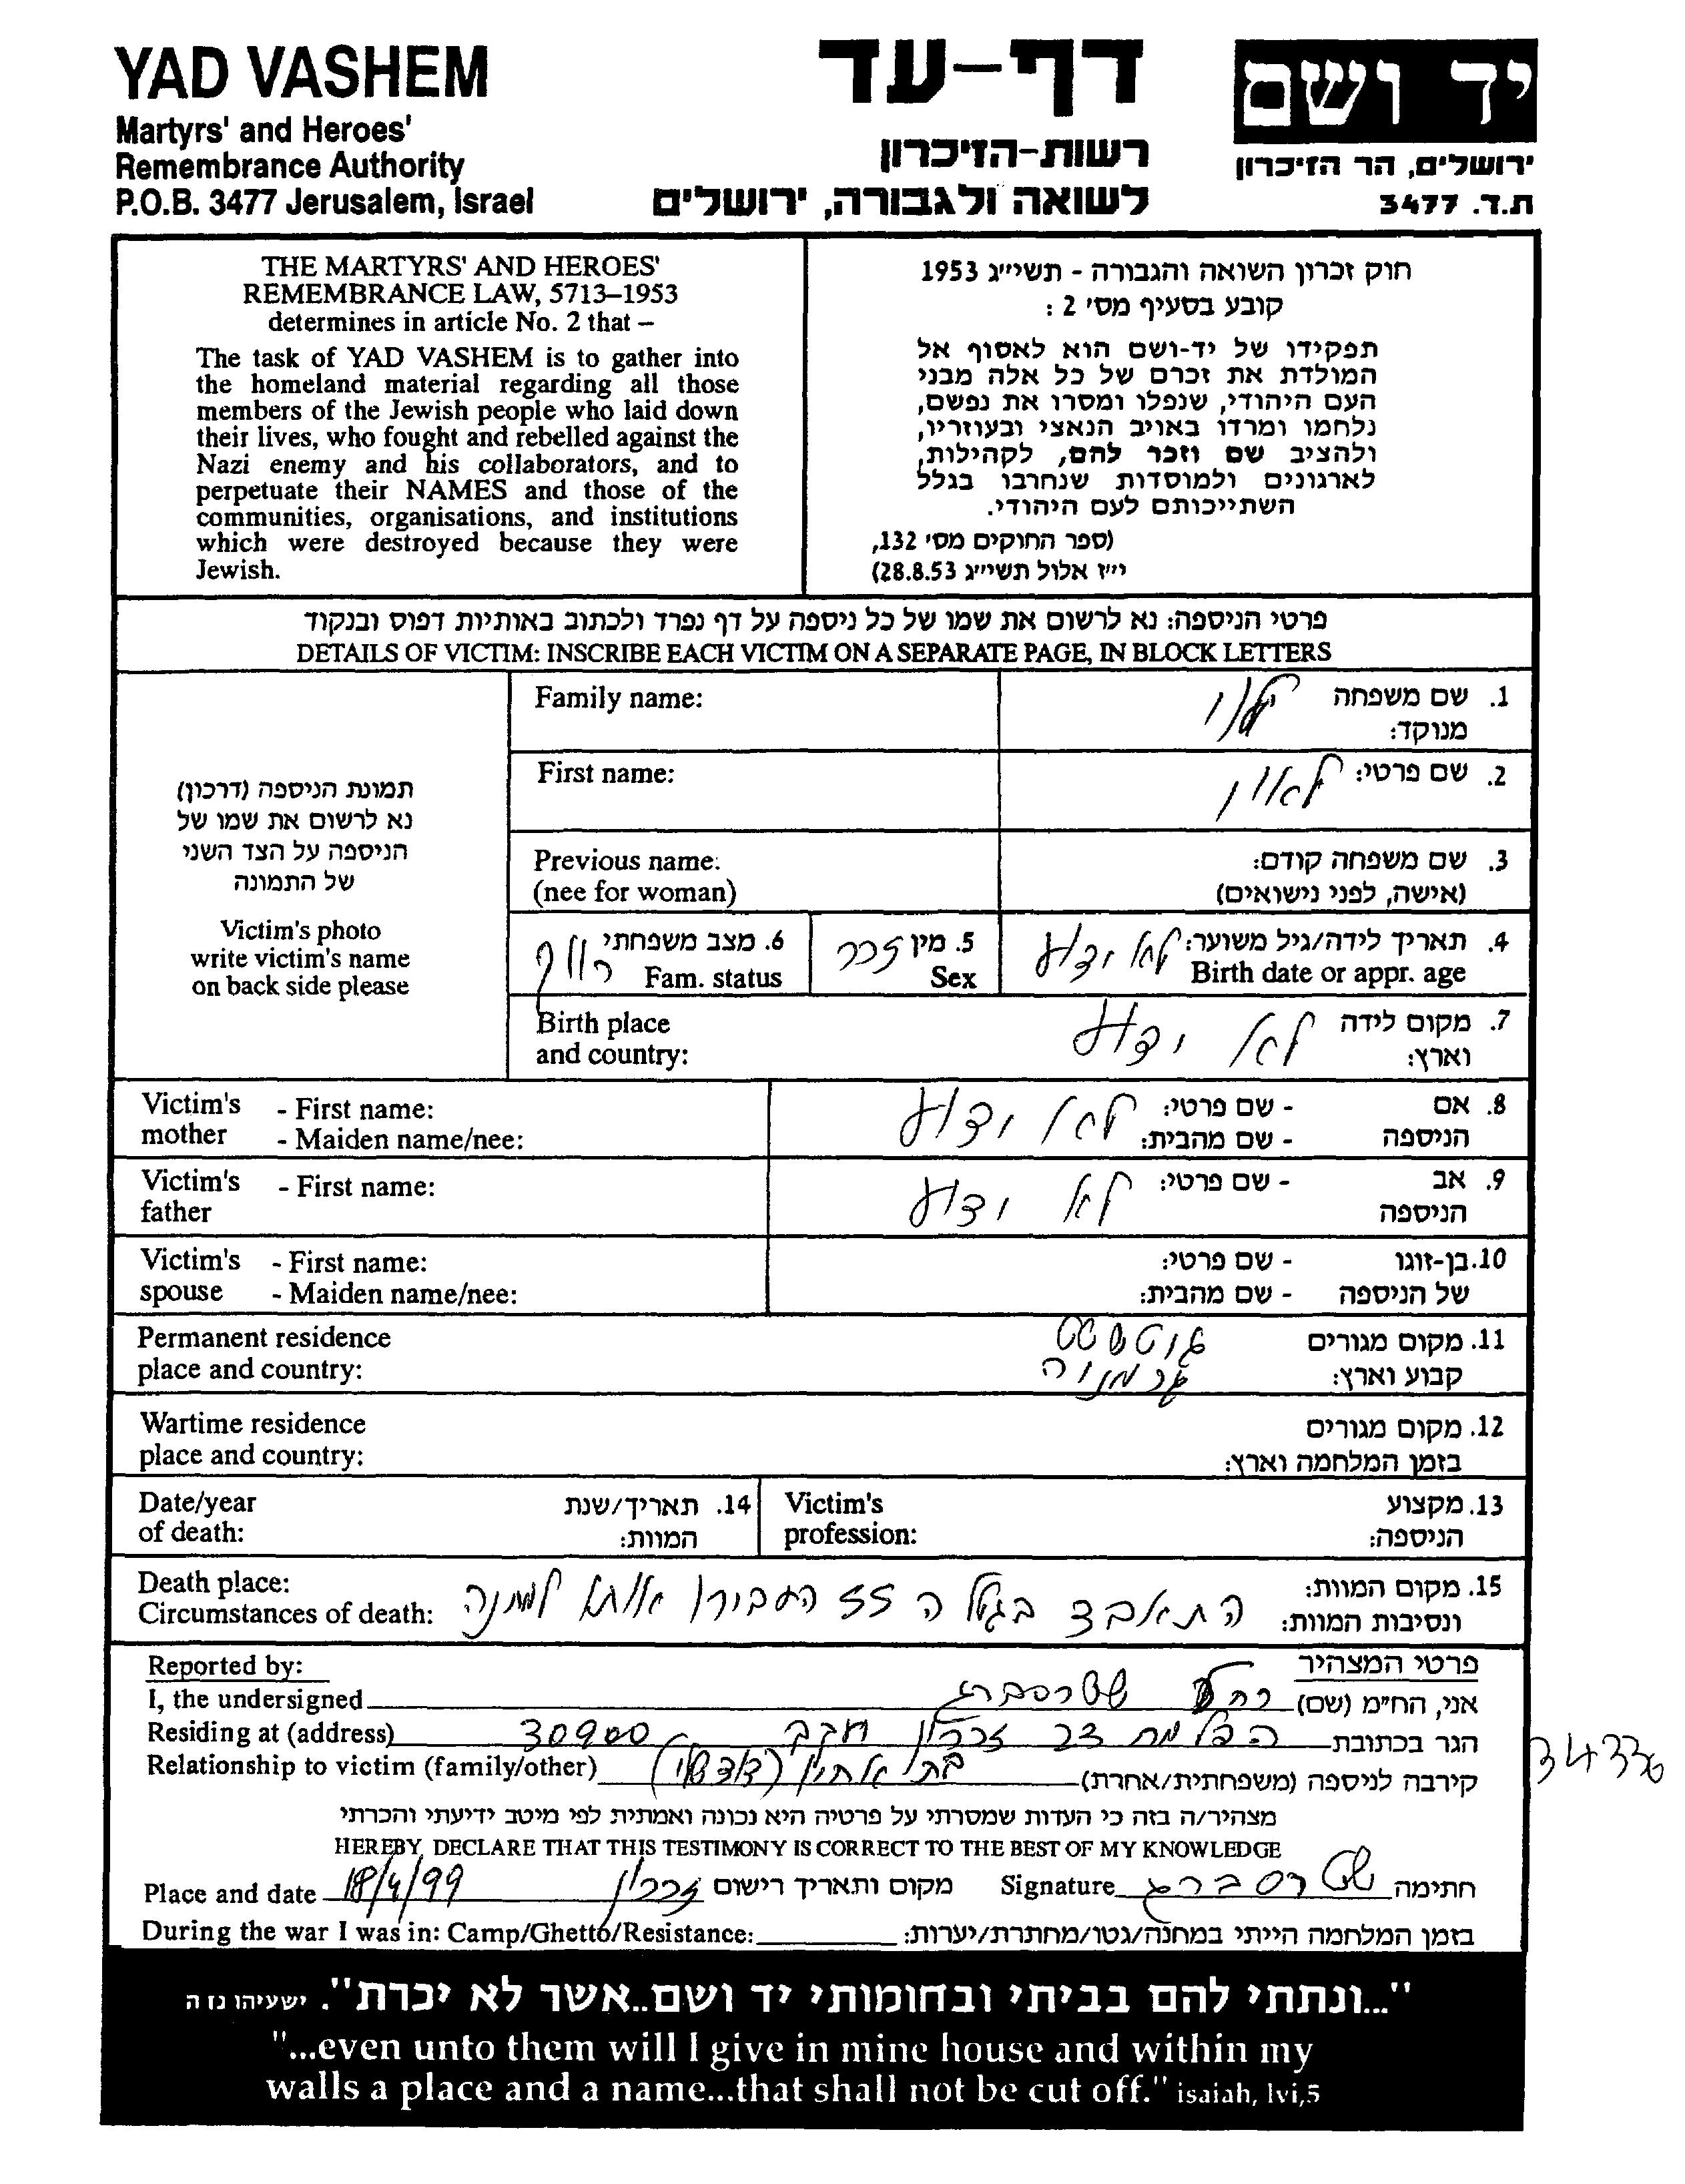 YAD VASHEM
Martyrs' and Heroes'
Remembrance Authority
P.O.B. 3477 Jerusalem, Israel
דף-עד
רשות-הזיכרון
לשואה ולגבורה, ירושלים
יד ושם
ירושלים, הר הזיכרון
ת.ד. 3477
THE MARTYRS' AND HEROES'
REMEMBRANCE LAW, 5713–1953
determines in article No. 2 that –
The task of YAD VASHEM is to gather into
the homeland material regarding all those
members of the Jewish people who laid down
their lives, who fought and rebelled against the
Nazi enemy and his collaborators, and to
perpetuate their NAMES and those of the
communities, organisations, and institutions
which were destroyed because they were
Jewish.
חוק זכרון השואה והגבורה - תשי״ג 1953
קובע בסעיף מס׳ 2 :
תפקידו של יד-ושם הוא לאסוף אל
המולדת את זכרם של כל אלה מבני
העם היהודי, שנפלו ומסרו את נפשם,
נלחמו ומרדו באויב הנאצי ובעוזריו,
ולהציב שם וזכר להם, לקהילות,
לארגונים ולמוסדות שנחרבו בגלל
השתייכותם לעם היהודי.
(ספר החוקים מס׳ 132,
י״ז אלול תשי״ג 28.8.53)
פרטי הניספה: נא לרשום את שמו של כל ניספה על דף נפרד ולכתוב באותיות דפוס ובנקוד
DETAILS OF VICTIM: INSCRIBE EACH VICTIM ON A SEPARATE PAGE, IN BLOCK LETTERS
תמונת הניספה (דרכון)
נא לרשום את שמו של
הניספה על הצד השני
של התמונה
Victim's photo
write victim's name
on back side please
Family name:
1. שם משפחה
מנוקד:
First name:
2. שם פרטי: לאון
Previous name:
(nee for woman)
3. שם משפחה קודם:
(אישה, לפני נישואים)
4. תאריך לידה/גיל משוער: לא ידוע
Birth date or appr. age
5. מין זכר
Sex
6. מצב משפחתי רווק
Fam. status
Birth place
and country:
7. מקום לידה
וארץ: לא ידוע
Victim's mother
- First name:
- Maiden name/nee:
8. אם הניספה
- שם פרטי: לא ידוע
- שם מהבית:
Victim's father
- First name:
9. אב הניספה
- שם פרטי: לא ידוע
Victim's spouse
- First name:
- Maiden name/nee:
10. בן-זוגו של הניספה
- שם פרטי:
- שם מהבית:
Permanent residence
place and country:
11. מקום מגורים
קבוע וארץ: גרמניה
Wartime residence
place and country:
12. מקום מגורים
בזמן המלחמה וארץ:
Date/year
of death:
14. תאריך/שנת
המוות:
Victim's
profession:
13. מקצוע
הניספה:
Death place:
Circumstances of death:
15. מקום המוות:
ונסיבות המוות:
התאבד בגלל ה SS העבירו אותו למחנה
Reported by:
פרטי המצהיר
I, the undersigned
אני, הח״מ (שם) רחל שטרסברג
Residing at (address)
הגר בכתובת הפלמח 23 זכרון יעקב 30900
34336
Relationship to victim (family/other)
קירבה לניספה (משפחתית/אחרת) בת אחיין
מצהיר/ה בזה כי העדות שמסרתי על פרטיה היא נכונה ואמתית לפי מיטב ידיעתי והכרתי
HEREBY DECLARE THAT THIS TESTIMONY IS CORRECT TO THE BEST OF MY KNOWLEDGE
Place and date 18/4/99 זכרון מקום ותאריך רישום
Signature שטרסברג חתימה
During the war I was in: Camp/Ghetto/Resistance:
בזמן המלחמה הייתי במחנה/גטו/מחתרת/יערות:
"...ונתתי להם בביתי ובחומותי יד ושם..אשר לא יכרת". ישעיהו נו ה
"...even unto them will I give in mine house and within my
walls a place and a name...that shall not be cut off." isaiah, lvi,5